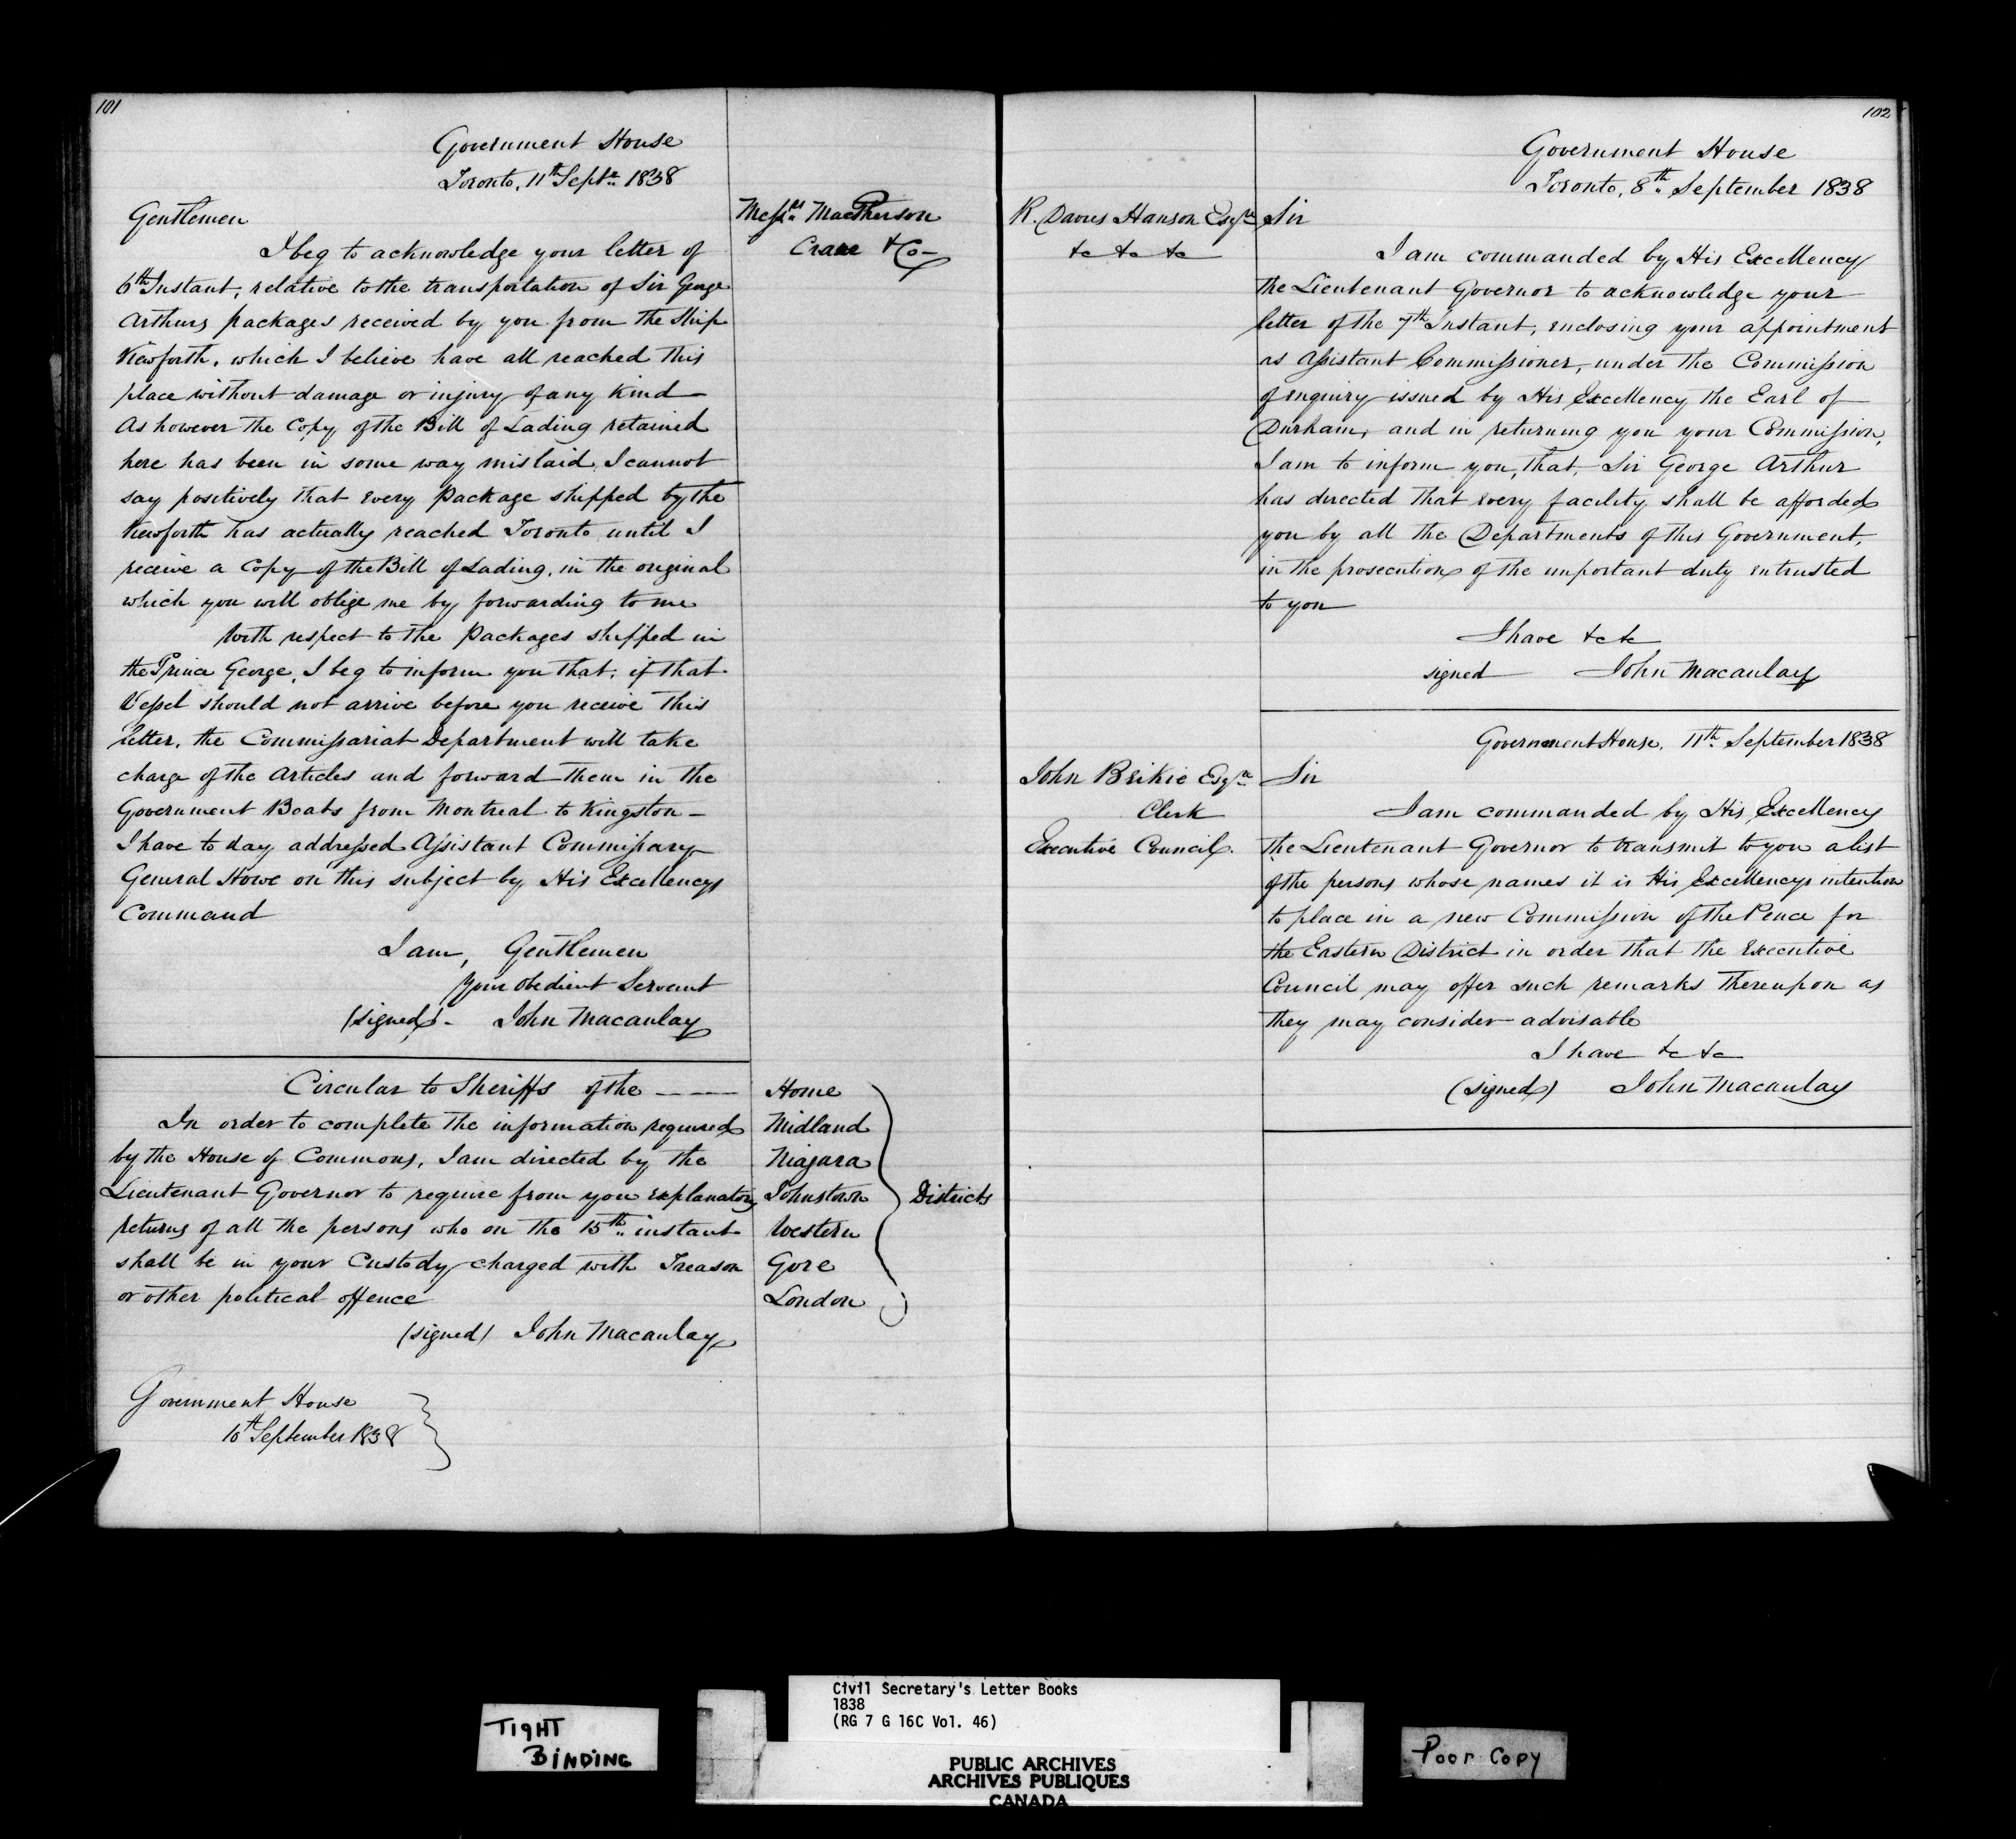 101
Government House
Toronto, 11th Septr 1838
Messrs MacPherson
Crane & Co—
Gentlemen
I beg to acknowledge your letter of
6th Instant, relative to the transportation of Sir George
Arthurs packages received by you from the Ship
Kewforth, which I believe have all reached this
place without damage or injury of any Kind—
As however the Copy of the Bill of Lading retained
here has been in some way mislaid, I cannot
say positively that every Package shipped by the
Kewforth has actually reached Toronto until I
receive a Copy of the Bill of Lading, in the original
which you will oblige me by forwarding to me
With respect to the Packages shipped in
the Prince George, I beg to inform you that, if that
Vessel should not arrive before you receive this
letter, the Commissariat Department will take
charge of the Articles and forward them in the
Government Boats from Montreal to Kingston—
I have to day addressed Assistant Commissary
General Howe on this subject by His Excellencys
Command
I am, Gentlemen
Your obedient Servant
(signed)- John Macaulay
Circular to Sheriffs of the ———
Home
Midland
Niagara
Johnstown
Western
Gore
London
Districts
In order to complete the information required
by the House of Commons, I am directed by the
Lieutenant Governor to require from you explanatory
returns of all the persons who on the 15th instant
shall be in your Custody charged with Treason
or other political offence
(signed) John Macaulay
Government House
10th September 1838
102
Government House
Toronto, 8th September 1838
R. Davies Hanson Esqre
&c &c &c
Sir
I am commanded by His Excellency
the Lieutenant Governor to acknowledge your
letter of the 7th Instant, enclosing your appointment
as Assistant Commissioner, under the Commission
of enquiry issued by His Excellency the Earl of
Durham, and in returning you your Commission,
I am to inform you, that, Sir George Arthur
has directed that every facility shall be afforded
you by all the Departments of this Government,
in the prosecution of the important duty entrusted
to you
I have &c &c
signed John Macaulay
Government House, 11th September 1838
John Beikie Esqre
Clerk
Executive Council.
Sir
I am commanded by His Excellency
the Lieutenant Governor to transmit to you a list
of the persons whose names it is His Excellencys intention
to place in a new Commission of the Peace for
the Eastern District in order that the Executive
Council may offer such remarks thereupon as
they may consider advisable
I have &c &c
(signed) John Macaulay
TIGHT
BINDING
Civil Secretary's Letter Books
1838
(RG 7 G 16C Vol. 46)
PUBLIC ARCHIVES
ARCHIVES PUBLIQUES
CANADA
Poor Copy